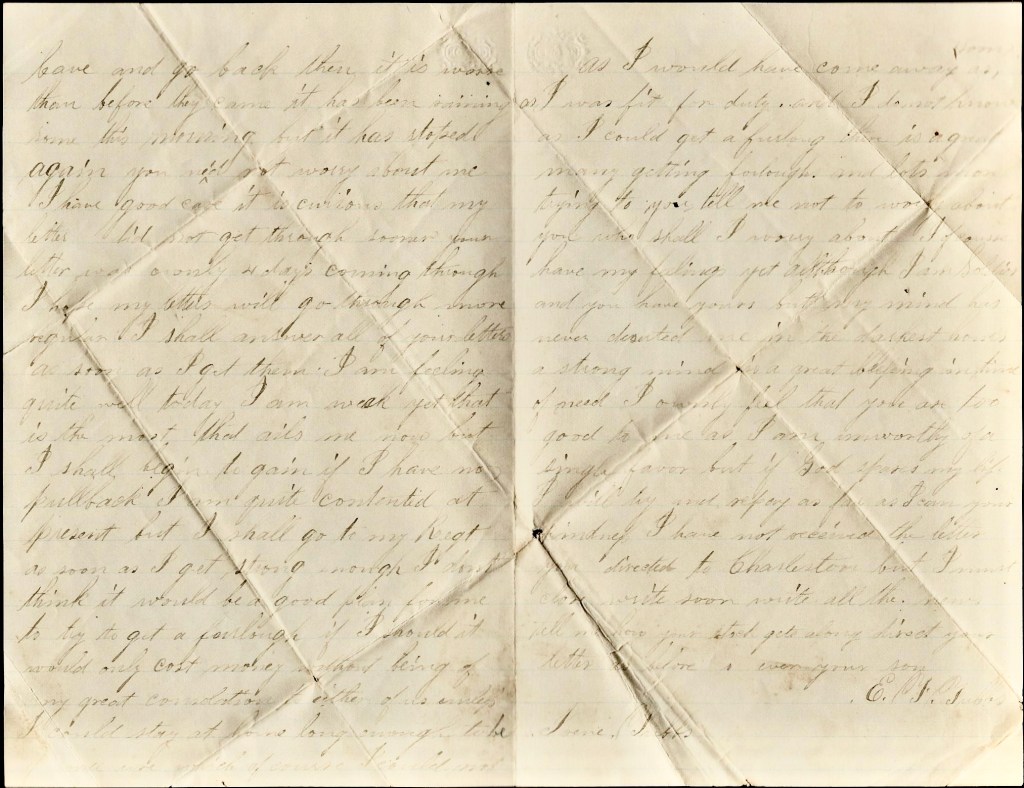 leave and go back then it is worse
than before they came it has been raining
some this morning but it has stoped
again you need not worry about me
I have good care it is curious that my
letter did not get through sooner your
letter was only 4 days coming through
I hope my letters will go through more
regular I shall answer all of your letters
as soon as I get them I am feeling
quite well today I am weak yet that
is the most that ails me now but
I shall begin to gain if I have no
pullback I am quite contented at
present but I shall go to my Regt
as soon as I get strong enough I dont
think it would be a good plan for me
to try to get a fourlough if I should it
would only cost money without being of
any great to either of us unless
I could stay at home long enough to be
which of course I could not
as I would have come away as
as I was fit for duty and I do not know
as I could get a furlong there is a great
many getting forlough and lots
trying to you tell me not to worry about
you who shall I worry about I of course
have my feelings yet although I am
and you have yours but my mind has
never me in the darkest hours
a strong mind is a great in time
of need I feel that you are too
good to me as I am unworthy of a
single favor but if God spares my life
I will try and repay as far as I can your
kindness I have not received the letter
you directed to Charleston but I must
close write soon write all the news
tell me how your stock gets along direct your
letter as before ever your son
E. P.